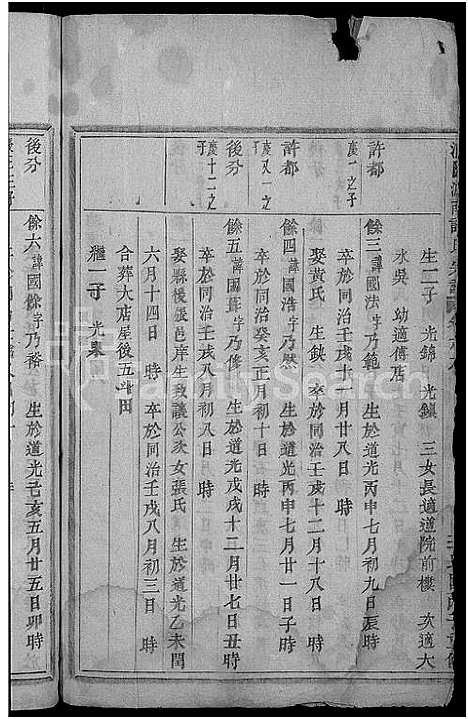 生二子 光錦 光鎮 三女長適道院前樓 次適大
水吳 幼適傅店
許都 慶一之子
餘三諱國法字乃範 生於道光丙申七月初九日辰時
卒於同治壬戌十一月廿八日 時
娶黃氏 生 卒於同治壬戌十二月十八日 時
許都 慶又一之子
餘四諱國浩字乃然 生於道光丙申七月廿一日子時
卒於同治癸亥正月初十日 時
後分 慶十二之子
餘五諱國 字乃修 生於道光戊戌十二月廿七日丑時
卒於同治壬戌八月初八日 時
娶縣後厫邑庠生致議公次女張氏 生於道光乙未閏
六月十四日 時 卒於同治壬戌八月初三日 時
合葬大店屋後五斗田
繼一子 光東
後分
餘六諱國徐字乃裕 生於道光己亥五月廿五日卯時
FamilySearch